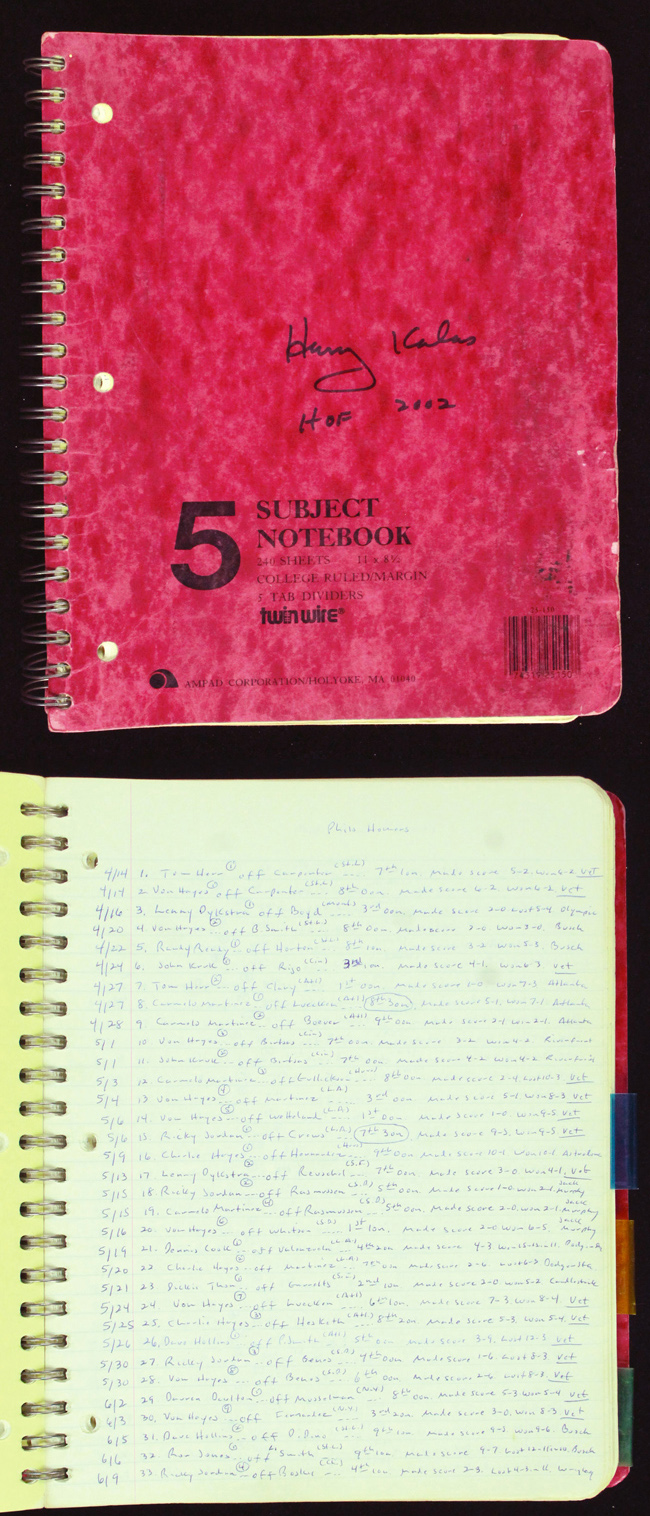 Harry Kalas
HOF 2002
5 SUBJECT
NOTEBOOK
240 SHEETS 11 x 8½
COLLEGE RULED/MARGIN
5 TAB DIVIDERS
twin wire®
AMPAD CORPORATION/HOLYOKE, MA 01040
Phils Homers
4/14 1. Tom Herr ① off Carpenter (St.L) 7th 1on. Made score 5-2, won 6-2 Vet
4/14 2 Von Hayes off Carpenter (St.L) 8th 0on. Made score 6-2, won 6-2 Vet
4/16 3. Lenny Dykstra off Boyd 3rd 0on. Made score 2-0 Lost 5-4 Olympic
4/20 4 Von Hayes ② off B. Smith (St.L) 8th 0on Made score 2-0 won 3-0. Busch
4/22 5. Randy Ready ① off Horton 8th 1on. Made score 3-2 won 5-3. Busch
4/24 6. John Kruk off Rijo (Cin) 3rd 1on. Made score 4-1, won 6-3 Vet
4/27 7. Tom Herr off Clary (Atl) 1st 0on Made score 1-0 won 7-3 Atlanta
4/27 8. Carmelo Martinez off Luecken (Atl) 8th 3on. Made score 5-1, won 7-1 Atlanta
4/28 9. Carmelo Martinez off Boever (Atl) 9th 0on Made score 2-1 won 2-1. Atlanta
5/1 10. Von Hayes off 7th 0on. Made score won 4-2. Riverfront
5/1 11. John Kruk off 7th 0on. Made score 4-2 won 4-2 Riverfront
5/3 12. Carmelo Martinez off Gullickson 8th 0on Made score 2-4, Lost 10-3 Vet
5/4 13 Von Hayes off Martinez (L.A) 3rd 0on Made score 5-1 won 8-3 Vet
5/6 14. Von Hayes ⑤ off Wetteland (L.A) 1st 0on Made score 1-0. won 9-5 Vet
5/6 15. Ricky Jordan off Crews (L.A) 7th 3on Made score 9-3, won 9-5 Vet
5/9 16. Charlie Hayes off 9th 0on Made score
5/13 17. Lenny Dykstra off Reuschel (S.F) 7th 0on Made score 3-0 won 4-1, Vet
5/15 18. Ricky Jordan off Rasmussen (S.D) 5th 0on Made score 1-0 won 2-1. Jack Murphy
5/15 19. Carmelo Martinez off Rasmussen (S.D) 5th 0on. Made score 2-0, won 2-1. Jack Murphy
5/16 20. Von Hayes ⑥ off Whitson (S.D) 1st 1on. Made score 2-0 won 6-5. Jack Murphy
5/19 21. Dennis Cook off Valenzuela (L.A) 4th 2on Made score 4-3 won Dodger Sta
5/20 22 Charlie Hayes off Martinez (L.A) 7th 0on Made score 2-6 Dodger Sta
5/21 23 Dickie Thon off Garrelts 2nd 1on Made score 2-0 won 5-2 Candlestick
5/24 24 Von Hayes ⑦ off Luecken (Atl) 6th 1on. Made score 7-3, won 8-4. Vet
5/25 25. Charlie Hayes off Hesketh (Atl) 8th 2on. Made score 5-3, won 5-4 Vet
5/26 26. Dave Hollins off P. Smith (Atl) 5th 0on Made score 3-9, Lost 12-3 Vet
5/30 27. Ricky Jordan off Benes (S.D) 4th 0on Made score 1-6. Lost 8-3. Vet
5/30 28. Von Hayes off Benes (S.D) 6th 0on Made score 2-6 Lost 8-3. Vet
6/2 29. Darren Daulton ① off Musselman (N.Y) 8th 0on. Made score 5-3 won 5-4 Vet
6/3 30. Von Hayes off Fernandez (N.Y.) 3rd 2on Made score 3-0, won 8-3. Vet
6/5 31. Dave Hollins off (St.L) 9th 1on Made score won 9-6. Busch
6/6 32. Ron Jones off Smith (St.L) 9th 1on. Made score 9-7 Lost Busch
6/9 33. Ricky Jordan ④ off (Chi) 4th 1on Made score 2-3. Lost 4-3 in 11. Wrigley